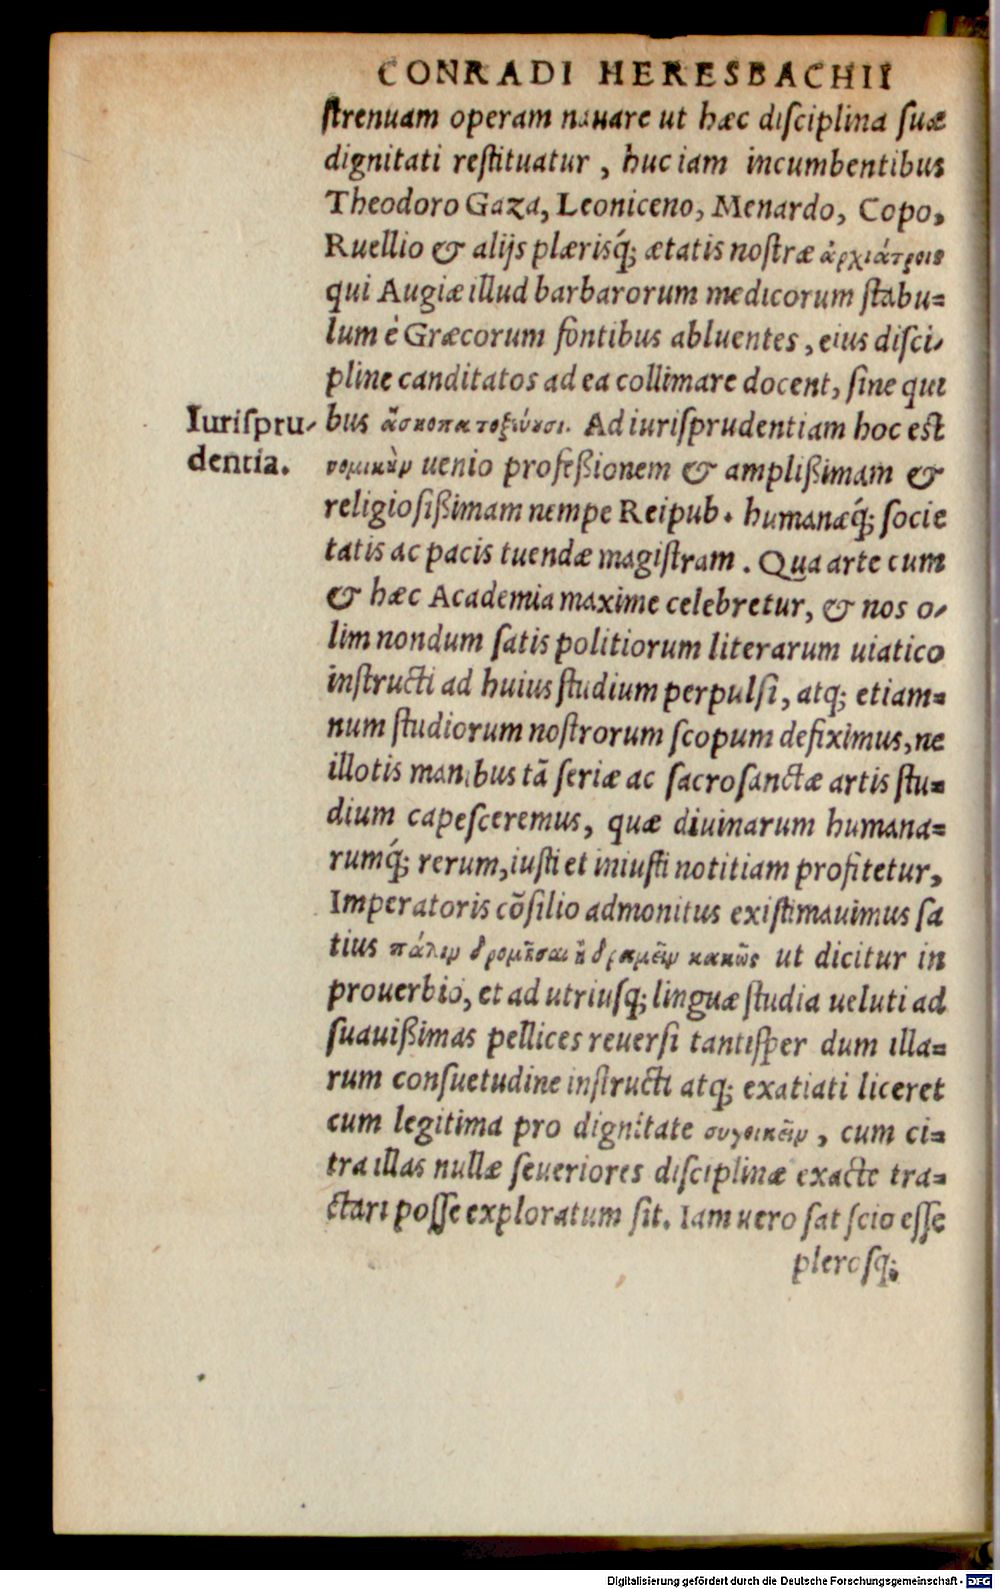 CONRADI HERESBACHII
ſtrenuam operam nauare ut hæc diſciplina ſuæ
dignitati reſtituatur, huc iam incumbentibus
Theodoro Gaza, Leoniceno, Menardo, Copo,
Ruellio & alijs plærisq́; ætatis noſtræ ἀρχιάτροις
qui Augiæ illud barbarorum medicorum ſtabu=
lum è Græcorum fontibus abluentes, eius diſci-
pline canditatos ad ea collimare docent, ſine qui
bus ἄσκοπα τοξεύουσι. Ad iurisprudentiam hoc est
Iuriſpru-
dentia.
νομικὴν uenio profeßionem & amplißimam &
religioſißimam nempe Reipub. humanæq́; ſocie
tatis ac pacis tuendæ magiſtram. Qua arte cum
& hæc Academia maxime celebretur, & nos o-
lim nondum ſatis politiorum literarum uiatico
inſtructi ad huius ſtudium perpulſi, atq; etiam=
num ſtudiorum noſtrorum ſcopum defiximus, ne
illotis manibus tã ſeriæ ac ſacroſanctæ artis ſtu=
dium capeſceremus, quæ diuinarum humana=
rumq́; rerum, iuſti et iniuſti notitiam profitetur,
Imperatoris cõſilio admonitus exiſtimauimus ſa
tius πάλιν δρομῆσαι ἢ δραμεῖν κακῶς ut dicitur in
prouerbio, et ad utriuſq; linguæ ſtudia ueluti ad
ſuauißimas pellices reuerſi tantiſper dum illa=
rum conſuetudine inſtructi atq; exatiati liceret
cum legitima pro dignitate συνοικεῖν, cum ci=
tra illas nullæ ſeueriores diſciplinæ exacte tra=
ctari poſſe exploratum ſit. Iam uero ſat ſcio eſſe
pleroſq;
Digitalisierung gefördert durch die Deutsche Forschungsgemeinschaft - DFG